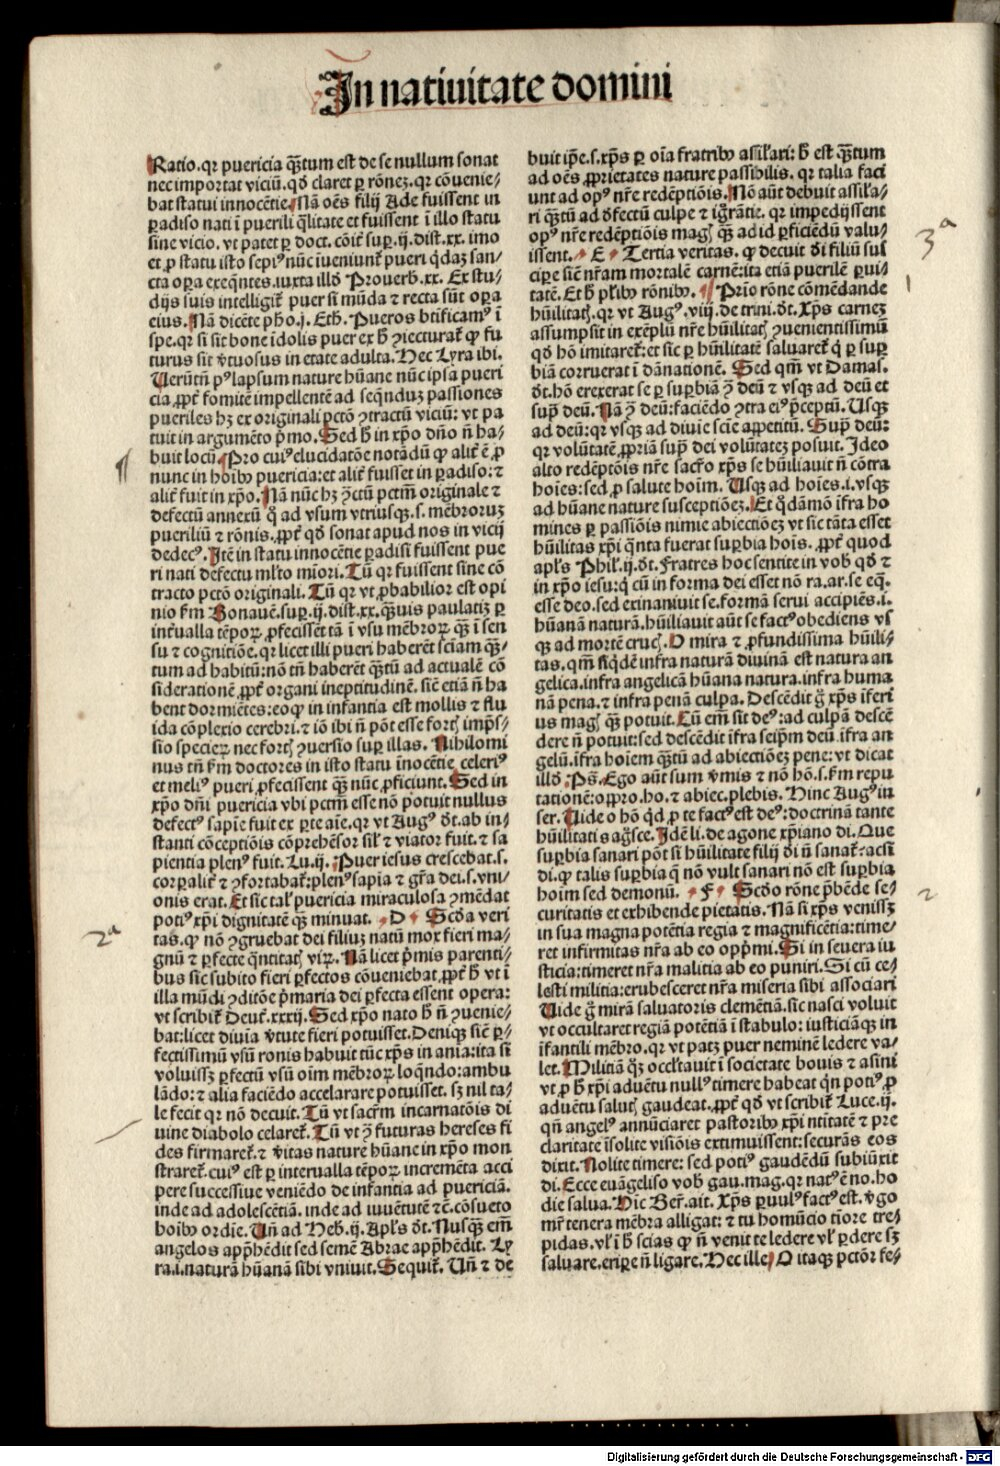 In natiuitate domini
Ratio.qr puericia qȝtum est de se nullum sonat
nec importat viciū. qđ claret ꝑ rōnez. qr cōuenie/
bat statui innocētie. Nā oēs filij Ade fuissent in
ꝑadiso nati ī puerili q̄litate et fuissent ī illo statu
sine vicio. vt patet ꝑ doct. cōit̄ suꝑ. ij. dist. xx. imo
et ꝓ statu isto sepiꝰ nūc īueniunt̄ pueri q̄daz san/
cta oꝑa exeq̄ntes. iuxta illđ Prouerb. xx. Ex stu/
dijs suis intelligit̄ puer si mūda ⁊ recta sūt oꝑa
eius. Nā dicēte pħo. j. Eth. Pueros btificamꝰ ī
spe. qr si sit bone īdolis puer ex ħ ꝯiecturat̄ ꝙ fu
turus sit v̄tuosus in etate adulta. Hec Lyra ibi.
Uerūtn̄ pꝰ lapsum nature hūane nūc ipsa pueri
cia ꝓpt̄ fomitē impellentē ad seq̄nduz passiones
pueriles hȝ ex originali pctō ꝯtractū viciū: vt pa
tuit in argumēto p̄mo. Sed ħ in xp̄o dn̄o n̄ ha/
buit locū. Pro cuiꝰ elucidatōe notādū ꝙ alit̄ ē ꝓ
nunc in hoībꝰ puericia: et alit̄ fuisset in ꝑadiso: ⁊
alit̄ fuit in xp̄o. Nā nūc hȝ ꝯctū pctm̄ originale ⁊
defectū annexū q̊ ad vsum vtriusqȝ. s. mēbroruz
pueriliū ⁊ rōnis. ꝓpt̄ qđ sonat apud nos in vicij
dedecꝰ. Itē in statu innocētie ꝑadisi fuissent pue
ri nati defectu ml̄to mīori. Tū qr fuissent sine cō
tracto pctō originali. Tū qr vt ꝓbabilior est opi
nio fm̄ Bonauē. suꝑ. ij. dist. xx. q̄uis paulatiȝ ꝑ
int̄ualla tēpoꝝ ꝓfecissēt tā ī vsu mēbroꝝ qȝ ī sen
su ⁊ cognitiōe. qr licet illi pueri haberēt sciam qȝ/
tum ad habitū: nō tn̄ haberēt qȝtū ad actualē cō
siderationē ꝓpt̄ organi ineptitudinē. sic̄ etiā n̄ ha
bent dormiētes: eoꝙ in infantia est mollis ⁊ flu
ida cōplexio cerebri. ⁊ iō ibi n̄ pōt esse fortꝭ imp̄s/
sio specieꝝ nec fortꝭ ꝯuersio suꝑ illas. Nihilomi
nus tn̄ fm̄ doctores in isto statu īnocētie celeriꝰ
et meliꝰ pueri ꝓfecissent qȝ nūc ꝓficiunt. Sed in
xp̄o dn̄i puericia vbi pctm̄ esse nō potuit nullus
defectꝰ sapīe fuit ex ꝑte aīe. qr vt Augꝰ đt. ab in/
stanti cōceptiōis cōprehēsor sil̄ ⁊ viator fuit. ⁊ sa
pientia plenꝰ fuit. Lu. ij. Puer iesus crescebat. s.
corꝑalit̄ ⁊ ꝯfortabat̄: plenꝰ sapīa ⁊ gr̄a dei. s. vni/
onis erat. Et sic tal̄ puericia miraculosa ꝯmēdat
potiꝰ xp̄i dignitatē qȝ minuat. D Scđa veri
tas. ꝙ nō ꝯgruebat dei filiuȝ natū mox fieri ma/
gnū ⁊ ꝑfecte q̄ntitatꝭ viꝝ. Nā licet p̄mis parenti/
bus sic subito fieri ꝑfectos cōueniebat ꝓpt̄ ħ vt ī
illa mūdi ꝯditōe p̄maria dei ꝑfecta essent opera:
vt scribit̄ Deut̄. xxxij. Sed xp̄o nato ħ n̄ ꝯuenie/
bat: licet diuīa v̄tute fieri potuisset. Deniqȝ sic̄ ꝑ/
fectissimū vsū ronis habuit tūc xp̄s in anīa: ita si
voluissȝ ꝑfectū vsū oīm mēbroꝝ loq̄ndo: ambu
lādo: ⁊ alia faciēdo accelarare potuisset. sȝ nil ta/
le fecit qr nō decuit. Tū vt sacr̄m incarnatōis di
uine diabolo celaret̄. Tū vt ꝯ futuras hereses fi
des firmaret̄. ⁊ v̄itas nature hūane in xp̄o mon
straret̄. cuiꝰ est ꝑ interualla tēpoꝝ incremēta acci
pere successiue veniēdo de infantia ad puericiā.
inde ad adolescētiā. inde ad iuuētutē ⁊c̄. cōsueto
hoībꝰ ordīe. Un̄ ad Heb. ij. Apl̄s đt. Nusqȝ em̄
angelos app̄hēdit sed semē Abrae app̄hēdit. Ly
ra. i. naturā hūanā sibi vniuit. Sequit̄. Un̄ ⁊ de
buit ip̄e. s. xp̄s ꝑ oīa fratribꝰ assil̄ari: ħ est qȝtum
ad oēs ꝓprietates nature passibilis. qr talia faci
unt ad opꝰ nr̄e redēptiōis. Nō aūt debuit assil̄a/
ri qȝtū ad đfectū culpe ⁊ igr̄ātie. qr impedijssent
opꝰ nr̄e redēptiōis magꝭ qȝ ad id ꝑficiēdū valu/
issent. E Tertia veritas. ꝙ decuit đi filiū sus
ciꝑe sic̄ nr̄am mortalē carnē: ita etiā puerilē ꝑui/
tatē. Et ħ pl̄ibꝰ rōnibꝰ. Prīo rōne cōmēdande
hūilitatꝭ. qr vt Augꝰ. viij. de trini. đt. Xp̄s carneȝ
assumpsit in exēplū nr̄e hūilitatꝭ ꝯuenientissimū
qđ hō imitaret̄: et sic ꝑ hūilitatē saluaret̄ q̇ ꝑ suꝑ
biā corruerat ī dānationē. Sed qm̄ vt Damas.
đt. hō erexerat se ꝑ suꝑbiā ꝯ deū ⁊ vsqȝ ad deū et
suꝑ deū. Nā ꝯ deū: faciēdo ꝯtra eiꝰ p̄ceptū. Usqȝ
ad deū: qr vsqȝ ad diuīe scīe appetitū. Suꝑ deū:
qr volūtatē ꝓpriā suꝑ dei volūtateȝ posuit. Ideo
alto redēptōis nr̄e sacr̄o xp̄s se hūiliauit n̄ cōtra
hoīes: sed ꝓ salute hoīm. Usqȝ ad hoīes. i. vsqȝ
ad hūane nature susceptiōeȝ. Et q̊dāmō īfra ho
mines ꝑ passiōis nimie abiectiōeȝ vt sic tāta esset
hūilitas xp̄i q̄nta fuerat suꝑbia hoīs. ꝓpt̄ quod
apl̄s Phil̄. ij. đt. Fratres hoc sentite in vob̄ qđ ⁊
in xp̄o iesu: q̇ cū in forma dei esset nō ra. ar. se eq̄.
esse deo. sed exinaniuit se. formā serui accipiēs. i.
hūanā naturā. hūiliauit aūt se factꝰ obediens vs
qȝ ad mortē crucꝭ. O mira ⁊ ꝓfundissima hūili/
tas. qm̄ siq̇dē infra naturā diuinā est natura an
gelica. infra angelicā hūana natura. infra huma
nā pena. ⁊ infra penā culpa. Descēdit ḡ xp̄s īferi
us magꝭ qȝ potuit. Cū em̄ sit deꝰ: ad culpā descē
dere n̄ potuit: sed descēdit īfra seip̄m deū. īfra an
gelū. īfra hoīem qȝtū ad abiectiōeȝ pene: vt dicat
illđ Ps̄. Ego aūt sum v̄mis ⁊ nō hō. s. fm̄ repu
tationē: oppro. ho. ⁊ abiec. plebis. Hinc Augꝰ in
ser. Uide o hō q̇d ꝓ te factꝰ est deꝰ: doctrinā tante
hūilitatis ag̊sce. Idē li. de agone xp̄iano di. Que
suꝑbia sanari pōt si hūilitate filij đi n̄ sanat̄: ac si
di. ꝙ talis suꝑbia q̄ nō vult sanari nō est suꝑbia
hoīm sed demonū. F Scđo rōne p̄bēde se/
curitatis et exhibende pietatis. Nā si xp̄s venissȝ
in sua magna potētia regia ⁊ magnificētia: time/
ret infirmitas nr̄a ab eo opp̄mi. Si in seuera iu
sticia: timeret nr̄a malitia ab eo puniri. Si cū ce/
lesti militia: erubesceret nr̄a miseria sibi associari
Uide ḡ mirā saluatoris clemētiā. sic nasci voluit
vt occultaret regiā potētiā ī stabulo: iusticiāqȝ in
īfantili mēbro. qr vt patȝ puer neminē ledere va/
let. Militiā q̊ȝ occl̄tauit ī societate bouis ⁊ asini
vt ꝓ ħ xp̄i aduētu nullꝰ timere habeat q̄n potiꝰ ꝓ
aduētu salutꝭ gaudeat. ꝓpt̄ qđ vt scribit̄ Luce. ij.
qn̄ angelꝰ annūciaret pastoribꝰ xp̄i ntitatē ⁊ pre
claritatē īsolite visiōis extimuissent: securās eos
dixit. Nolite timere: sed potiꝰ gaudēdū subiūxit
di. Ecce euāgeliso vob̄ gau. mag. qr natꝰ ē no. ho
die salua. Hīc Ber̄. ait. Xp̄s ꝑuulꝰ factꝰ est. v̄go
mr̄ tenera mēbra alligat: ⁊ tu homūcio tīore tre/
pidas. vl̄ ī ħ scias ꝙ n̄ venit te ledere vl̄ ꝑdere sȝ
saluare. eriꝑe n̄ ligare. Hec ille. O itaqȝ pctōr se/
3ª
1
¶
2ª
2
Digitalisierung gefördert durch die Deutsche Forschungsgemeinschaft - DFG